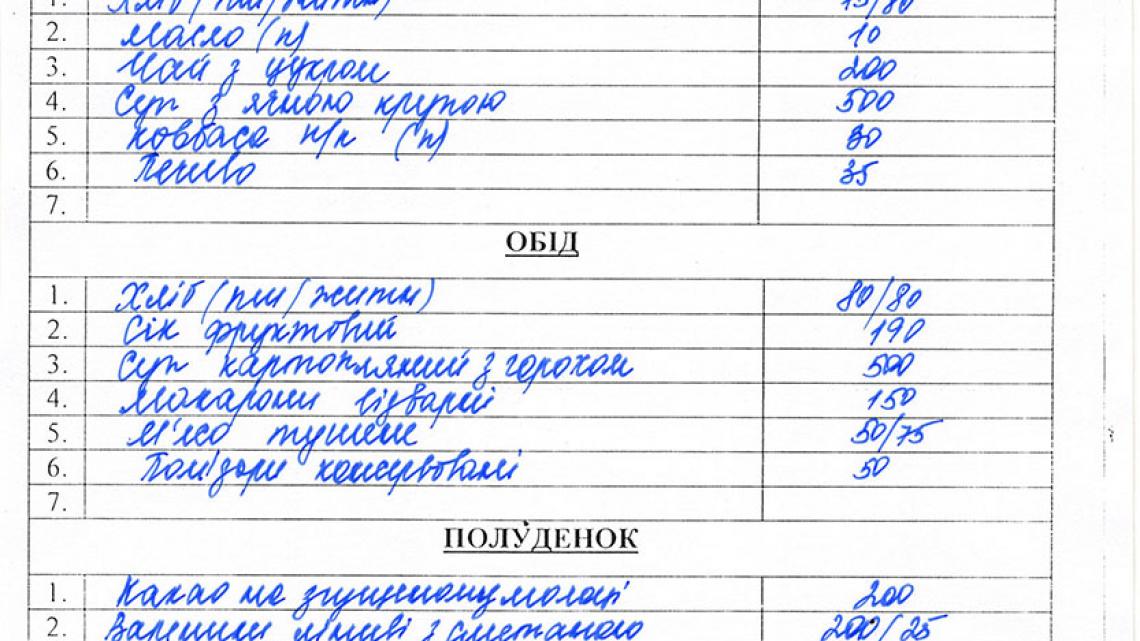 1. Хліб (пш/житн) 75/80
2. Масло (п) 10
3. Чай з цукром 200
4. Суп з ячною крупою 500
5. Ковбаса п/к (п) 30
6. Печиво 35
7.
ОБІД
1. Хліб (пш/житн) 80/80
2. Сік фруктовий 190
3. Суп картопляний з горохом 500
4. Макарони відварні 150
5. М'ясо тушене 50/75
6. Помідори консервовані 50
7.
ПОЛУДЕНОК
1. Какао на згущеному молоці 200
2. Вареники ліниві з сметаною 200/25